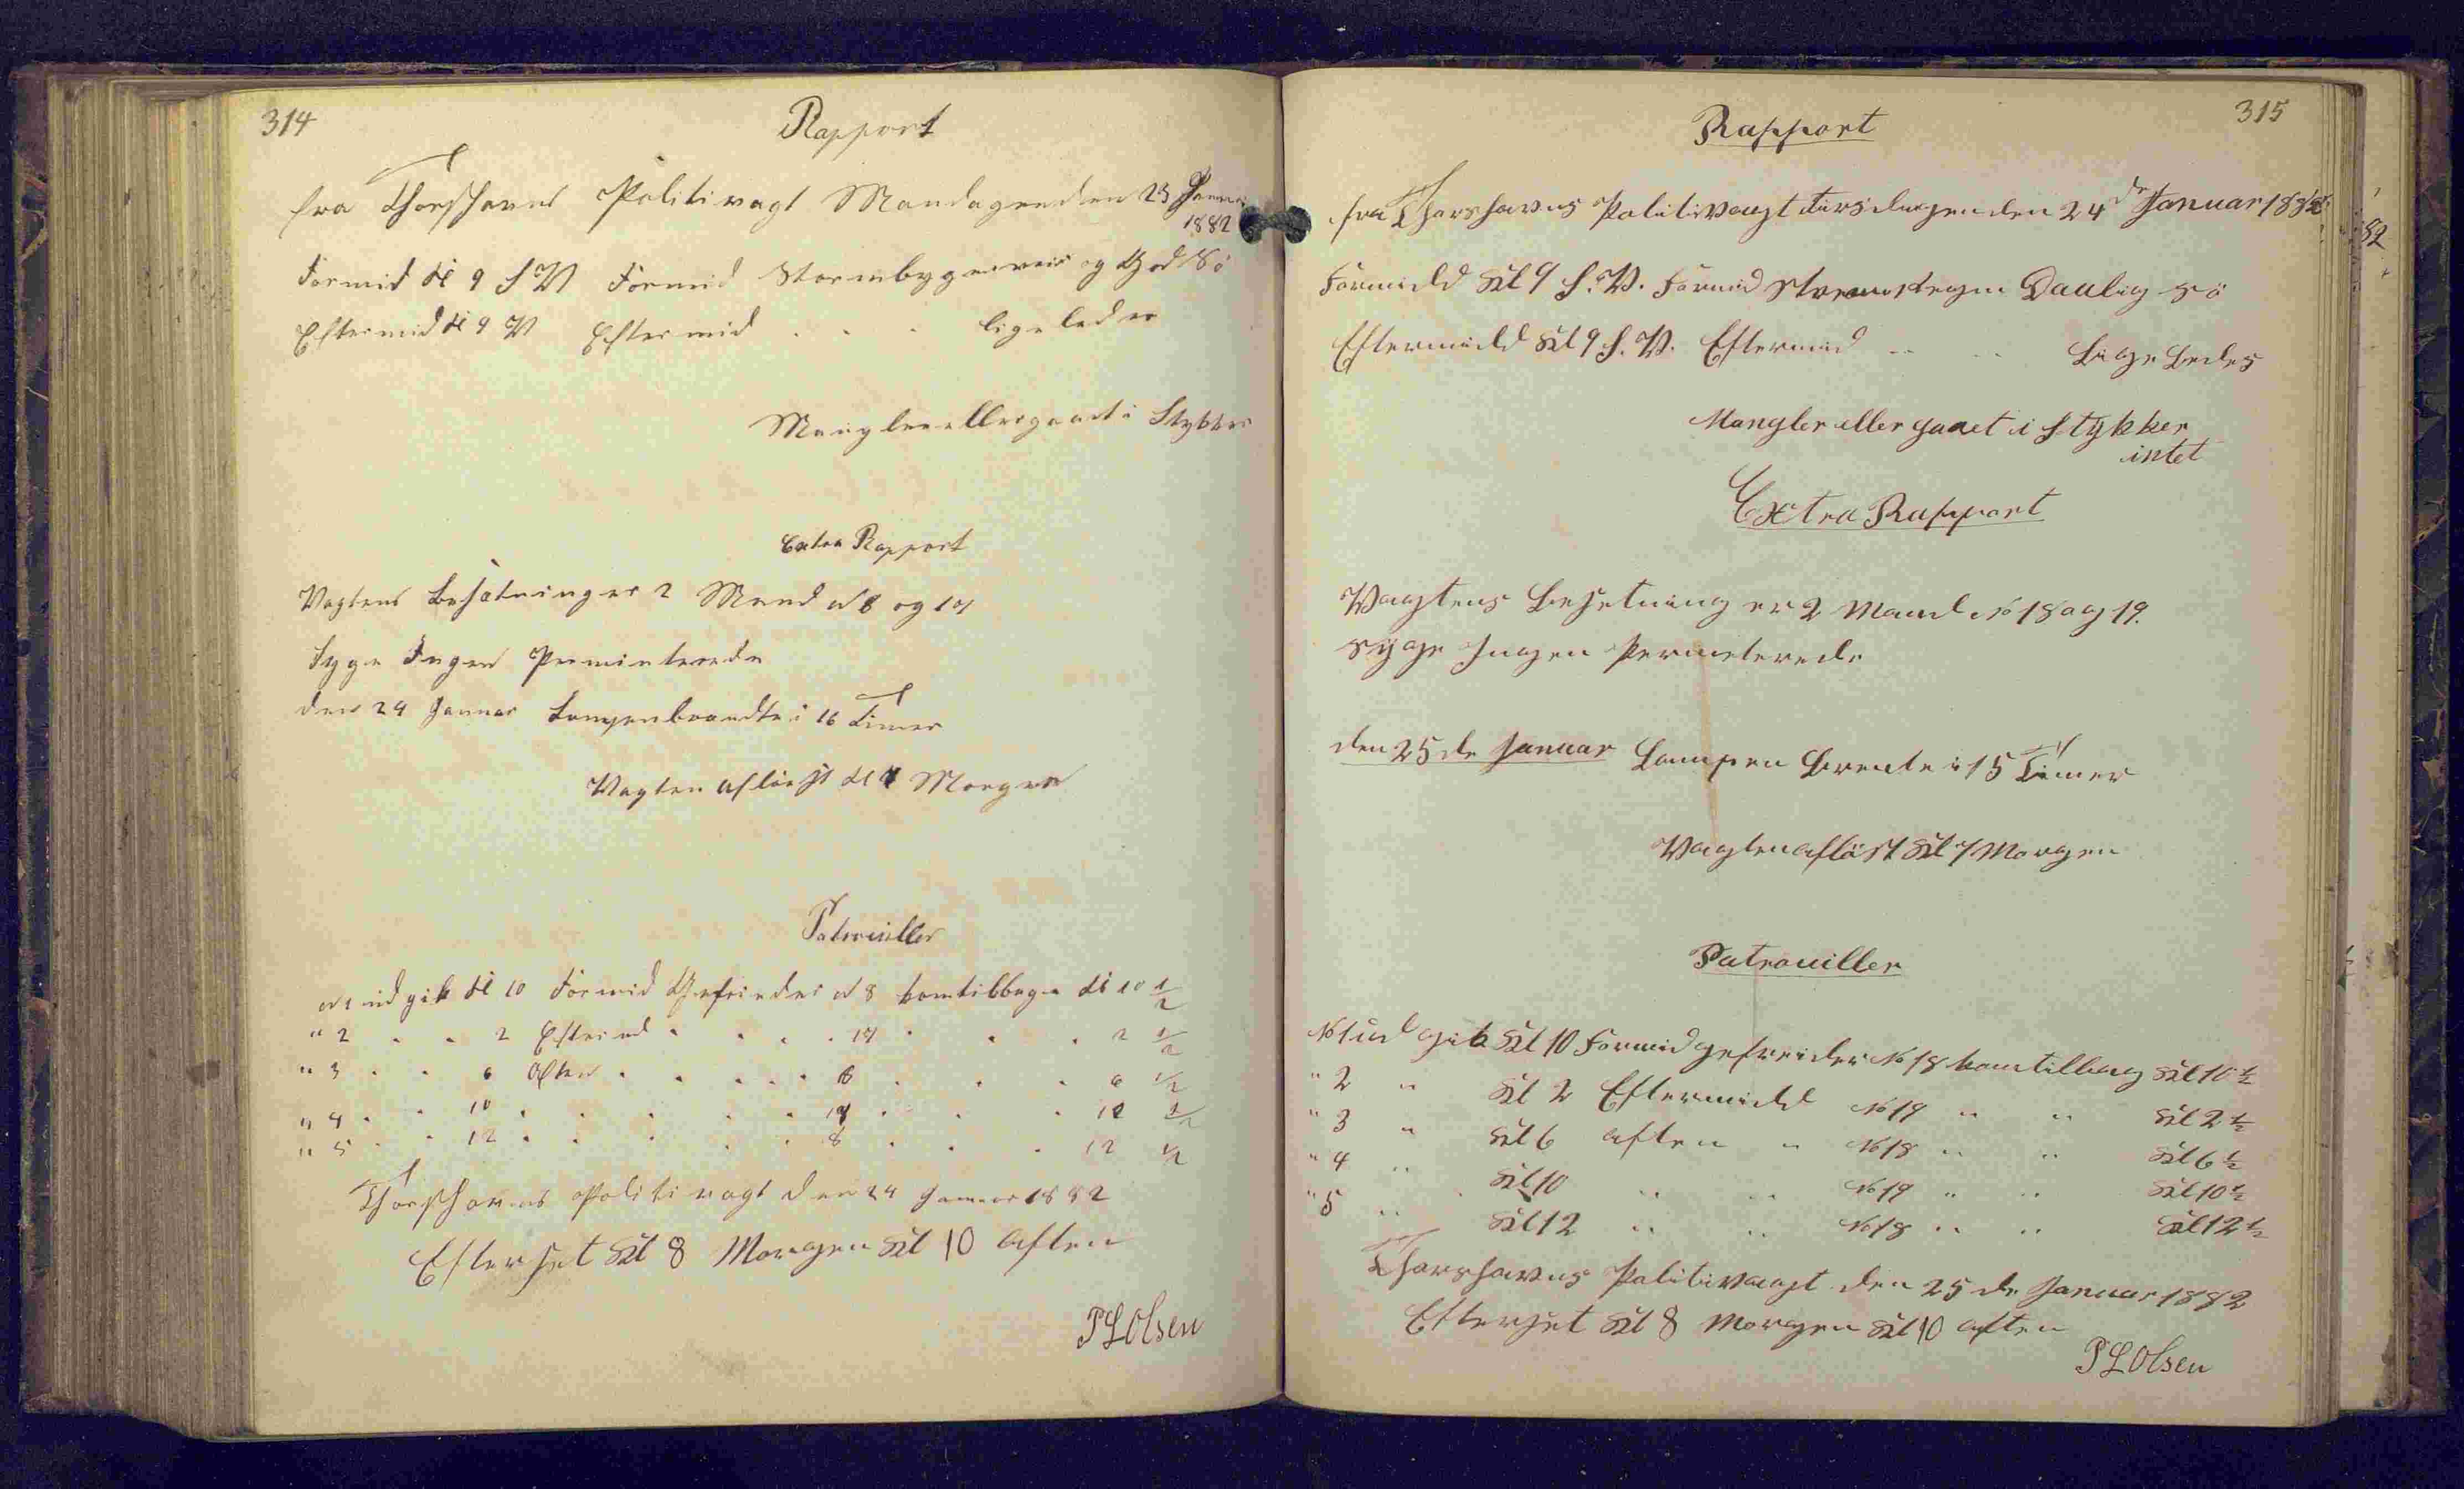 314
Rapport
fra Thorshavns Politivagt Mandagen den 23 Januar
1882
Formid Kl 9 S V Formid Storm bygeveir og God Sö
Eftermid Kl 9 V Eftermid . . . ligeledes
Mangler eller gaaet i Stykker
Extra Rapport
Vagtens Besætning er 2 Mand N 8 og 17
Syge Ingen Perminterede
den 24 Januar Lampen brændte i 16 Timer
Vagten aflöst Kl 7 Morgen
Patrouiller
N 1 ud gik Kl 10 Formid Gefreider N 8 kom tilbage Kl 10 1/2
" 2 . . 2 Efterm . . . . 17 . . . 2 1/2
" 3 . . 6 Aften . . . . 8 . . . 6 1/2
" 4 . . 10 . . . . 17 . . . 10 1/2
" 5 . . 12 . . . . 8 . . . 12 1/2
Thorshavns Politivagt den 24 Januar 1882
Efterset Kl 8 Morgen Kl 10 Aften
P L Olsen
315
Rapport
fra Thorshavns Politivagt Tirsdagen den 24de Januar 1882
Formidd Kl 9 S. V. Formid Storm Regn Daalig Sö
Eftermidd Kl 9 S. V. Eftermid .. .. Lige Ledes
Mangler eller gaaet i Stykker
intet
Extra Rapport
Vagtens Besetning er 2 Mand No 18 og 19.
Syge Ingen Permeterede
den 25de Januar Lampen Brente i 15 Timer
Vagten aflöst Kl 7 Morgen
Patrouiller
No 1 ud gik Kl 10 Formid gefreider No 18 kom tilbag Kl 10 1/2
" 2 " Kl 2 Eftermidd No 19 " " Kl 2 1/2
" 3 " Kl 6 Aften " No 18 " " Kl 6 1/2
" 4 " Kl 10 " " No 19 " " Kl 10 1/2
" 5 " Kl 12 " " No 18 " " Kl 12 1/2
Thorshavns Politivagt den 25de Januar 1882
Efterset Kl 8 Morgen Kl 10 Aften
P L Olsen
82